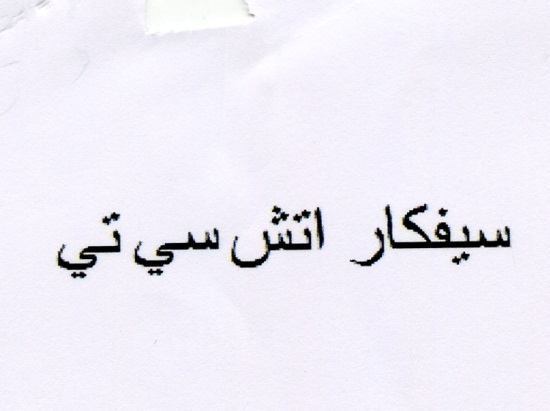 سيفكار اتش سي تي